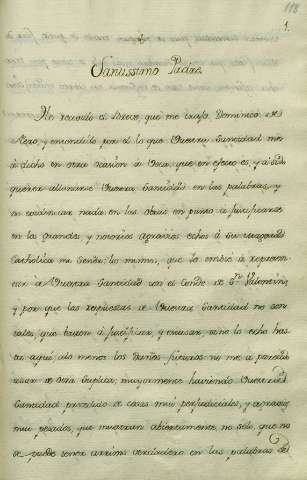 118
1.
Santissimo Padre
He recevido el Breve que me trajo Dominico de
Nero, y entendido por el lo que Vuestra Santidad me
à dicho en otra ocasion à Voca, que en efecto es, y à
querer allanarse Vuestra Santidad en las palabras, y
en nada en las obras en punto à justificarse
en los grandes, y notorios agravios echos à Su Magestad
Catholica mi Señor: lo mismo, que lo embio à represen
tar à Vuestra Santidad con el Conde de Sn. Valentin,
y por que las repuestas de Vuestra Santidad no son
tales, que basten à justificar, y escusar, sino lo echo has
ta aqui alo menos los daños futuros no me à parecido
usar de otra suplica, mayormente haviendo Vuestra
Santidad procedido à cosas muy perjudiciales, y agravios
muy pesados, que muestran abiertamente, no solo que no
se puede tener arrimo verdadero en las palabras de